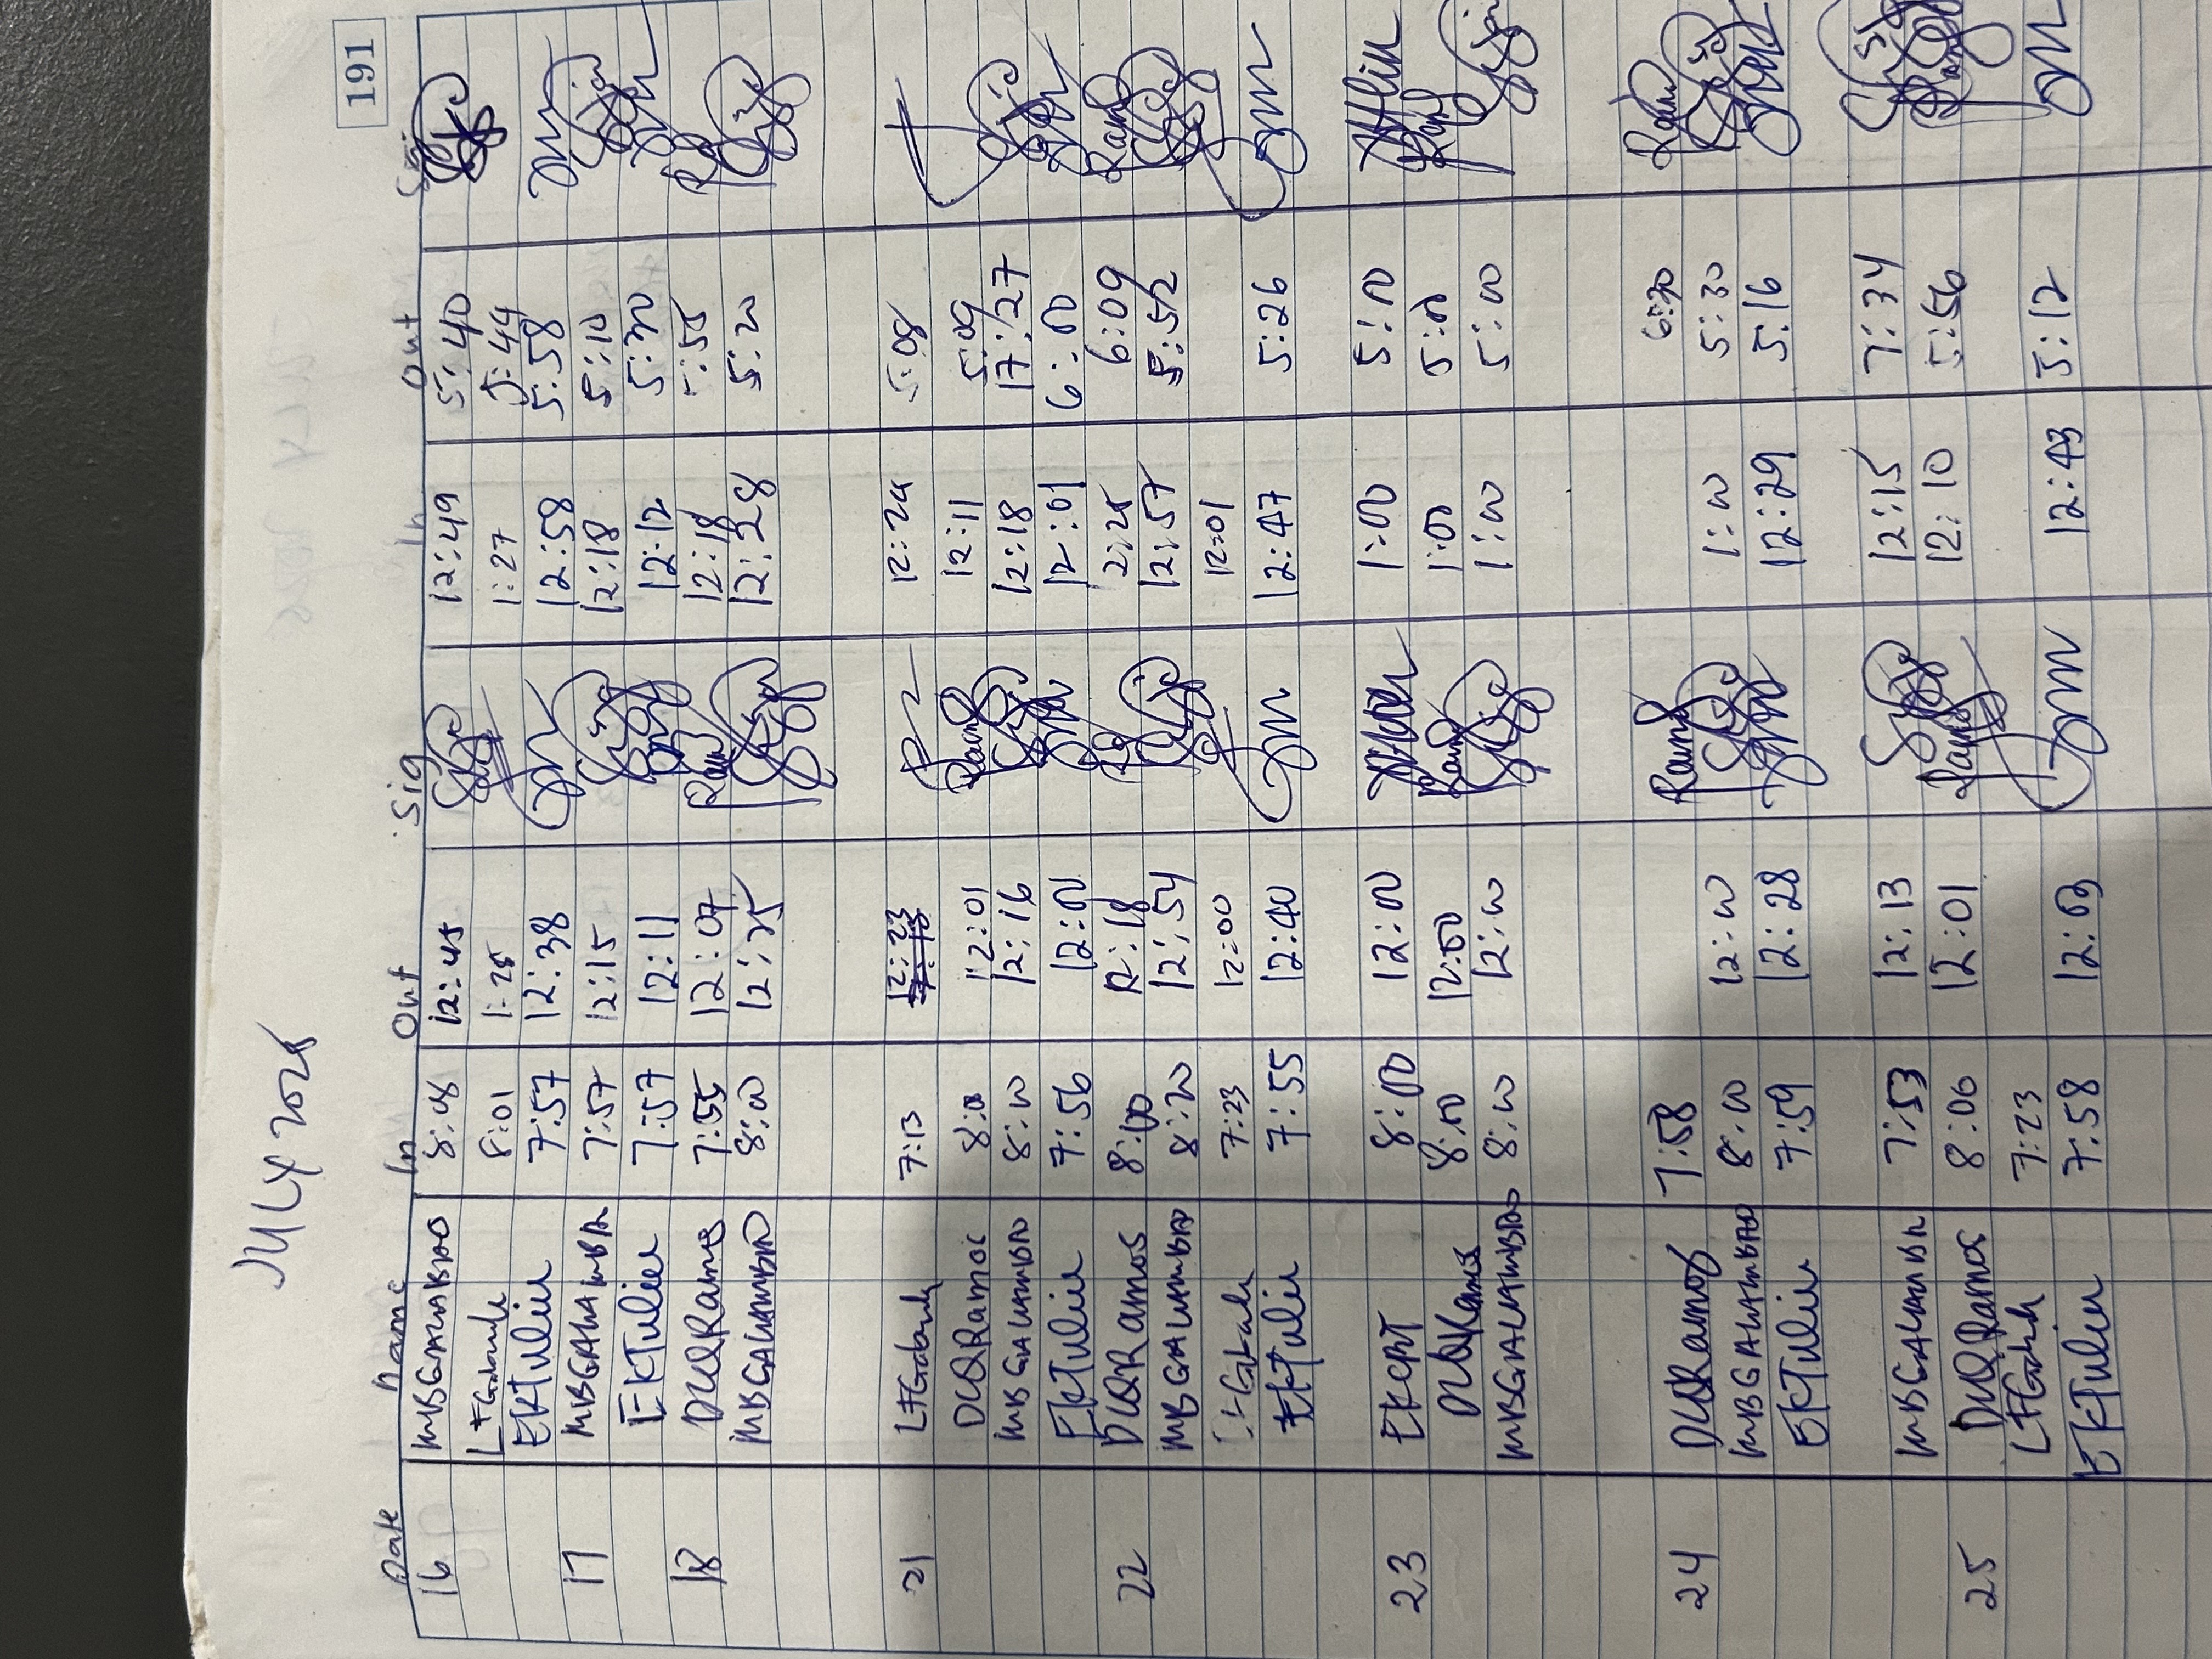 191
JULY 2025
Date Name In Out Sig In Out Sig
16 MBGALAMBAO 8:08 12:45 12:49 5:40
8:01 1:25 1:27 5:44
EKTulin 7:57 12:38 12:58 5:58
17 MBGALAMBA 7:57 12:15 12:18 5:10
EKTulin 7:57 12:11 12:12 5:30
18 DLQRamos 7:55 12:07 12:18 5:55
MBGALAMBAO 8:00 12:25 12:28 5:20
21 7:13 12:23 12:24 5:08
DLQRamos 8:00 12:01 12:11 5:09
MBGALAMBAO 8:00 12:16 12:18 17:27
EKTulin 7:56 12:00 12:01 6:00
22 DLQRamos 8:00 12:18 2:25 6:09
MBGALAMBAO 8:20 12:54 12:57 5:52
7:23 12:00 12:01
EKTulin 7:55 12:40 12:47 5:26
23 8:00 12:00 1:00 5:00
DLQRamos 8:00 12:00 1:00 5:00
MBGALAMBAO 8:00 12:00 1:00 5:00
24 DLQRamos 7:58 6:30
MBGALAMBAO 8:00 12:00 1:00 5:30
EKTulin 7:59 12:28 12:29 5:16
MBGALAMBA 7:53 12:13 12:15 7:34
25 DLQRamos 8:00 12:01 12:10 5:56
7:23
EKTulin 7:58 12:09 12:43 5:12